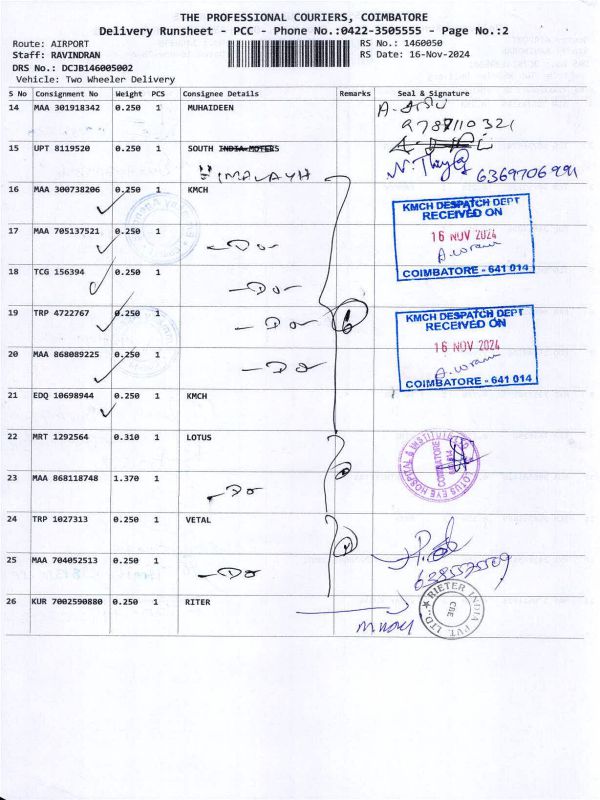 THE PROFESSIONAL COURIERS, COIMBATORE
Delivery Runsheet - PCC - Phone No.:0422-3505555 - Page No.:2
Route: AIRPORT RS No.: 1460050
Staff: RAVINDRAN RS Date: 16-Nov-2024
DRS No.: DCJB146005002
Vehicle: Two Wheeler Delivery
S No Consignment No Weight PCS Consignee Details Remarks Seal & Signature
14 MAA 301918342 0.250 1 MUHAIDEEN
9787110321
15 UPT 8119520 0.250 1 SOUTH INDIA MOTERS
HIMALAYH 6369706991
16 MAA 300738206 0.250 1 KMCH
KMCH DESPATCH DEPT
RECEIVED ON
16 NOV 2024
COIMBATORE - 641 014
17 MAA 705137521 0.250 1 -Do-
18 TCG 156394 0.250 1 -Do-
19 TRP 4722767 0.250 1 -Do- 6
KMCH DESPATCH DEPT
RECEIVED ON
16 NOV 2024
COIMBATORE - 641 014
20 MAA 868089225 0.250 1 -Do-
21 EDQ 10698944 0.250 1 KMCH
22 MRT 1292564 0.310 1 LOTUS
LOTUS EYE HOSPITAL & INSTITUTE
COIMBATORE
23 MAA 868118748 1.370 1 -Do
24 TRP 1027313 0.250 1 VETAL
25 MAA 704052513 0.250 1 -Do
26 KUR 7002590880 0.250 1 RITER
RIETER INDIA PVT. LTD.,
CBE